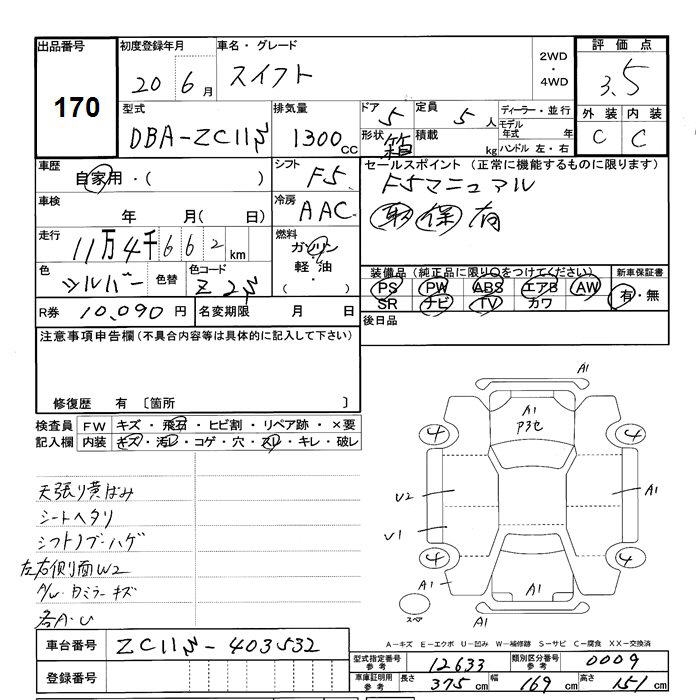 出品番号
170
初度登録年月
20 6月
車名・グレード
スイフト
2WD
・
4WD
評価点
3.5
型式
DBA-ZC11S
排気量
1300CC
ドア
5
定員
5人
形状
箱
積載
kg
ディーラー・並行
モデル
年式 年
ハンドル 左・右
外装 内装
C C
車歴
自家用・( )
シフト
F5
セールスポイント (正常に機能するものに限ります)
F5マニュアル
取 保 有
車検
年 月( 日)
冷房
AAC
走行
11万4千662km
燃料
ガソリン
軽油
( ・ )
色
シルバー
色替
色コード
Z2S
装備品 (純正品に限り○をつけてください)
PS PW ABS エアB AW
SR ナビ TV カワ
新車保証書
有・無
R券 10,090円
名変期限 月 日
後日品
注意事項申告欄(不具合内容等は具体的に記入して下さい)
修復歴 有 〔箇所 〕
検査員 FW キズ・飛石・ヒビ割・リペア跡・×要
記入欄 内装 キズ・汚レ・コゲ・穴・スレ・キレ・破レ
天張り黄ばみ
シートヘタリ
シフトノブ・ハゲ
左右側面W2
ミラーキズ
各A・U
A1
A1
P3セ
4 4
U2
A1
U1
4 4
A1
A1
A1
スペア
A-キズ E-エクボ U-凹み W-補修跡 S-サビ C-腐食 XX-交換済
車台番号 ZC11S-403532
登録番号
型式指定番号
参考
12633
類別区分番号
参考
0009
車庫証明用
参考
長さ 375cm 幅 169cm 高さ 151cm